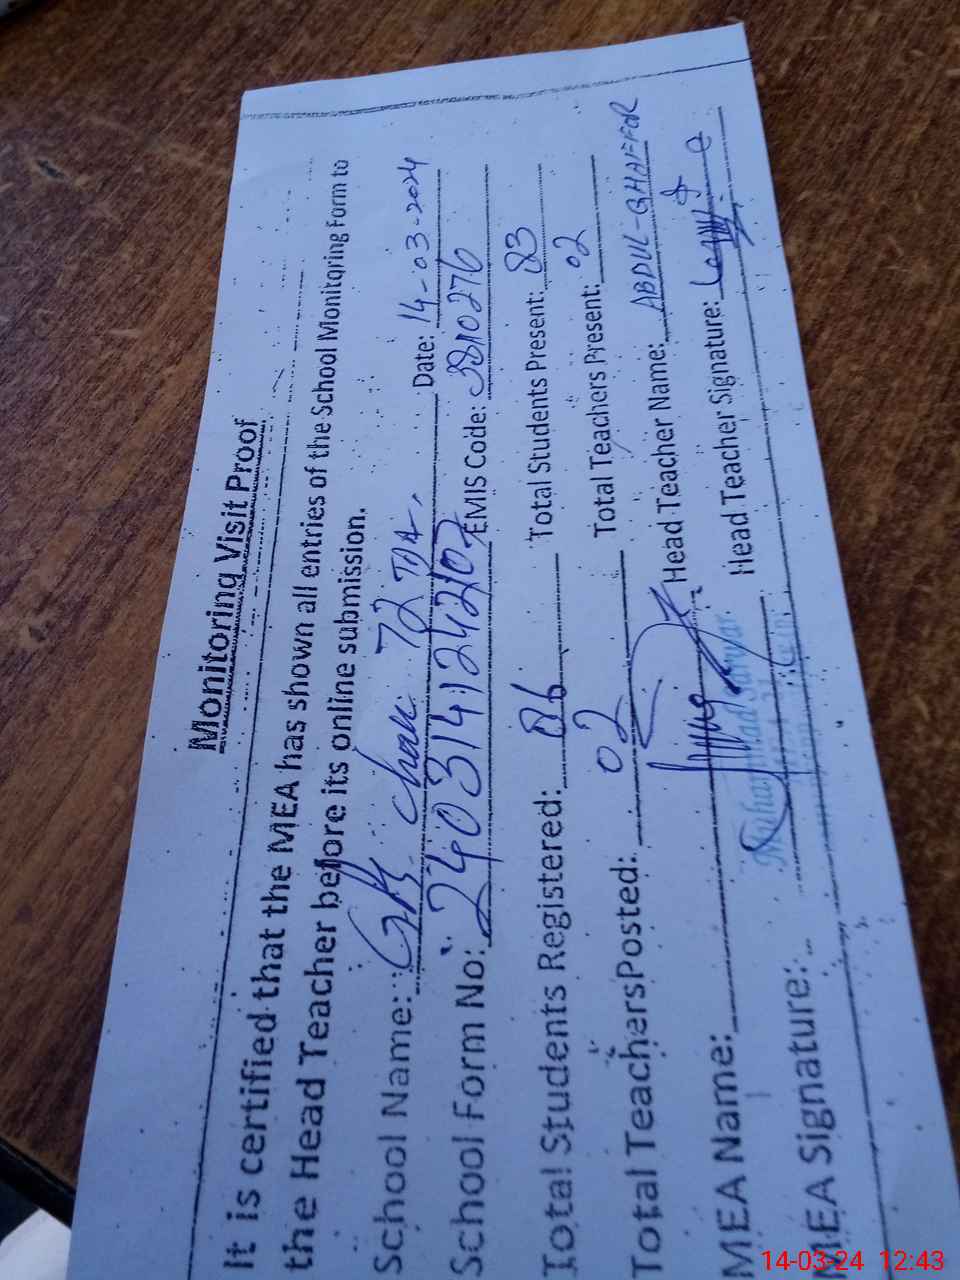 Monitoring Visit Proof
It is certified that the MEA has shown all entries of the School Monitoring Form to
the Head Teacher before its online submission.
School Name: GPS chak 72 TDA Date: 14-03-2024
School Form No: 2403141242107 EMIS Code: 3810276
Total Students Registered: 86 Total Students Present: 83
Total Teachers Posted: 02 Total Teachers Present: 02
MEA Name: Head Teacher Name: ABDUL-GHAFFOR
Muhammad Sarwar
MEA Signature: Head Teacher Signature:
14-03-24 12:43